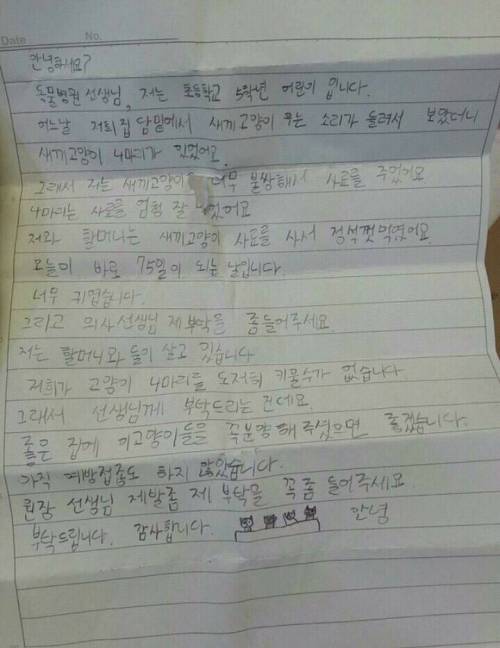 Date No.
안녕하세요?
동물병원 선생님, 저는 초등학교 5학년 어린이 입니다.
어느날 저희 집 담밑에서 새끼고양이 우는 소리가 들려서 보았더니
새끼고양이 4마리가 있었어요.
그래서 저는 새끼고양이 너무 불쌍해서 사료를 주었어요
4마리는 사료를 엄청 잘 었어요
저와 할머니는 새끼고양이 사료를 사서 정석껏 먹였어요
오늘이 바로 75일이 되는 날입니다.
너무 귀엽습니다.
그리고 의사선생님 제부탁을 좀들어주세요
저는 할머니와 둘이 살고 있습니다
저희가 고양이 4마리를 도저히 키울수가 없습니다
그래서 선생님께 부탁드리는 건데요.
좋은 집에 이고양이들을 꼭분양해주셨으면 좋겠습니다.
아직 예방접종도 하지 않았습니다.
원장 선생님 제발좀 제 부탁을 꼭좀 들어주세요
부탁드립니다. 감사합니다. 안녕